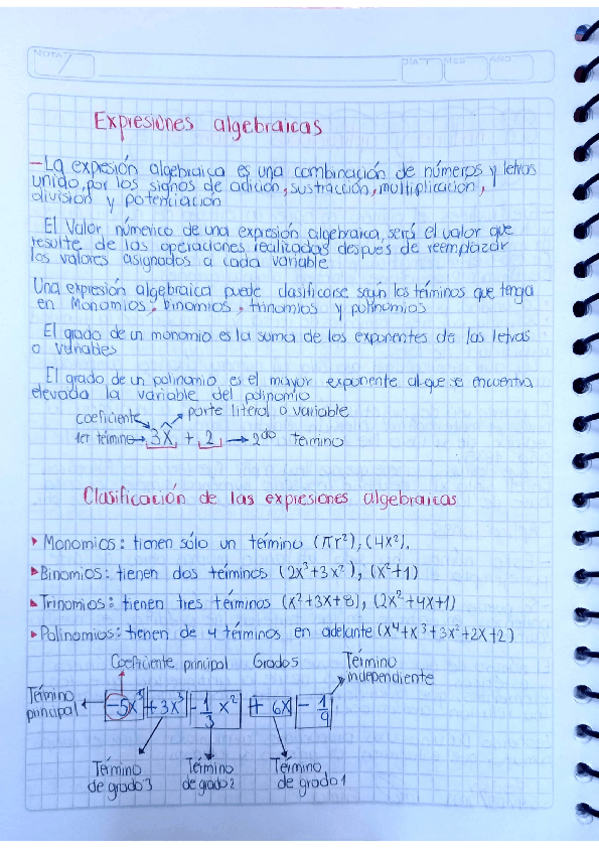 NOTA
DIA MES AÑO
Expresiones algebraicas
- La expesión algebraica es una combinación de números y letras
unido, por los signos de adición, sustracción, multiplicación,
división y potenciación
El Valor numérico de una expresión algebraica, será el valor que
resulte de las operaciones realizadas después de reemplazar
los valores asignados a cada variable
Una expresión algebraica puede clasificarse según los términos que tenga
en Monomios, binomios, trinomios y polinomios
El grado de un monomio es la suma de los exponentes de las letras
o variables
El grado de un polinomio es el mayor exponente al que se encuentra
elevada la variable del polinomio
coeficiente parte literal o variable
1er término → 3x + 2 → 2do término
Clasificación de las expresiones algebraicas
Monomios: tienen sólo un término (πr²), (4x²).
Binomios: tienen dos términos (2x³+3x²), (x²+1)
Trinomios: tienen tres términos (x²+3x+8), (2x²+4x+1)
Polinomios: tienen de 4 términos en adelante (x⁴+x³+3x²+2x+2)
Coeficiente principal Grados Término
independiente
Término
principal ← -5x⁴ + 3x³ - 1/3 x² + 6x - 1/9
Término Término Término
de grado 3 de grado 2 de grado 1